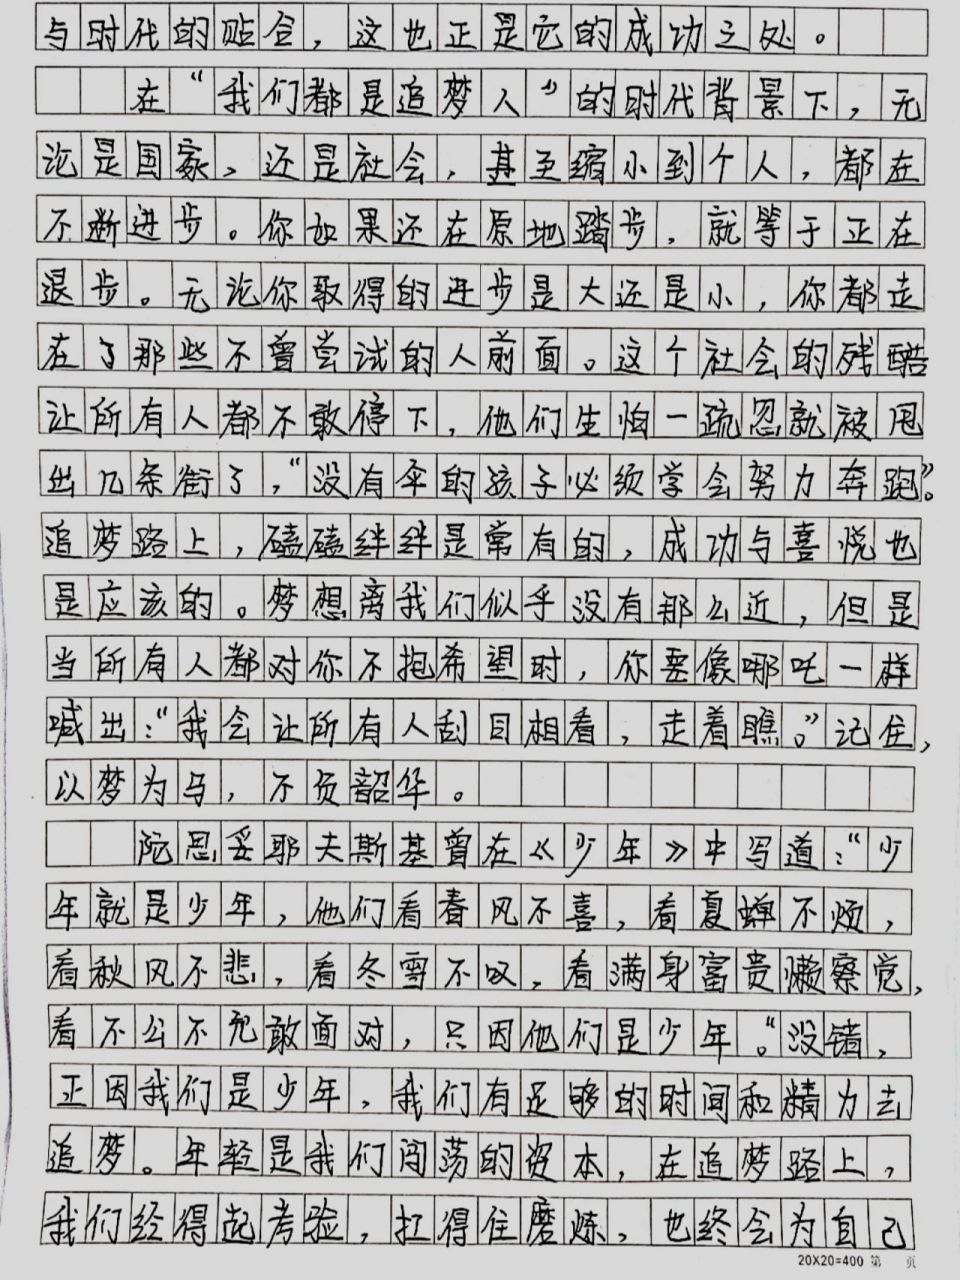 与时代的贴合，这也正是它的成功之处。
在“我们都是追梦人”的时代背景下，无
论是国家、还是社会，甚至缩小到个人，都在
不断进步。你如果还在原地踏步，就等于正在
退步。无论你取得的进步是大还是小，你都走
在了那些不曾尝试的人前面。这个社会的残酷
让所有人都不敢停下，他们生怕一疏忽就被甩
出几条街了，“没有伞的孩子必须学会努力奔跑”。
追梦路上，磕磕绊绊是常有的，成功与喜悦也
是应该的。梦想离我们似乎没有那么近，但是
当所有人都对你不抱希望时，你要像哪吒一样
喊出：“我会让所有人刮目相看，走着瞧。”记住，
以梦为马，不负韶华。
陀思妥耶夫斯基曾在《少年》中写道：“少
年就是少年，他们看春风不喜，看夏蝉不烦，
看秋风不悲，看冬雪不叹，看满身富贵懒察觉，
看不公不允敢面对，只因他们是少年。“没错，
正因我们是少年，我们有足够的时间和精力去
追梦。年轻是我们闯荡的资本，在追梦路上，
我们经得起考验，扛得住磨炼，也终会为自己
20X20=400 第 页